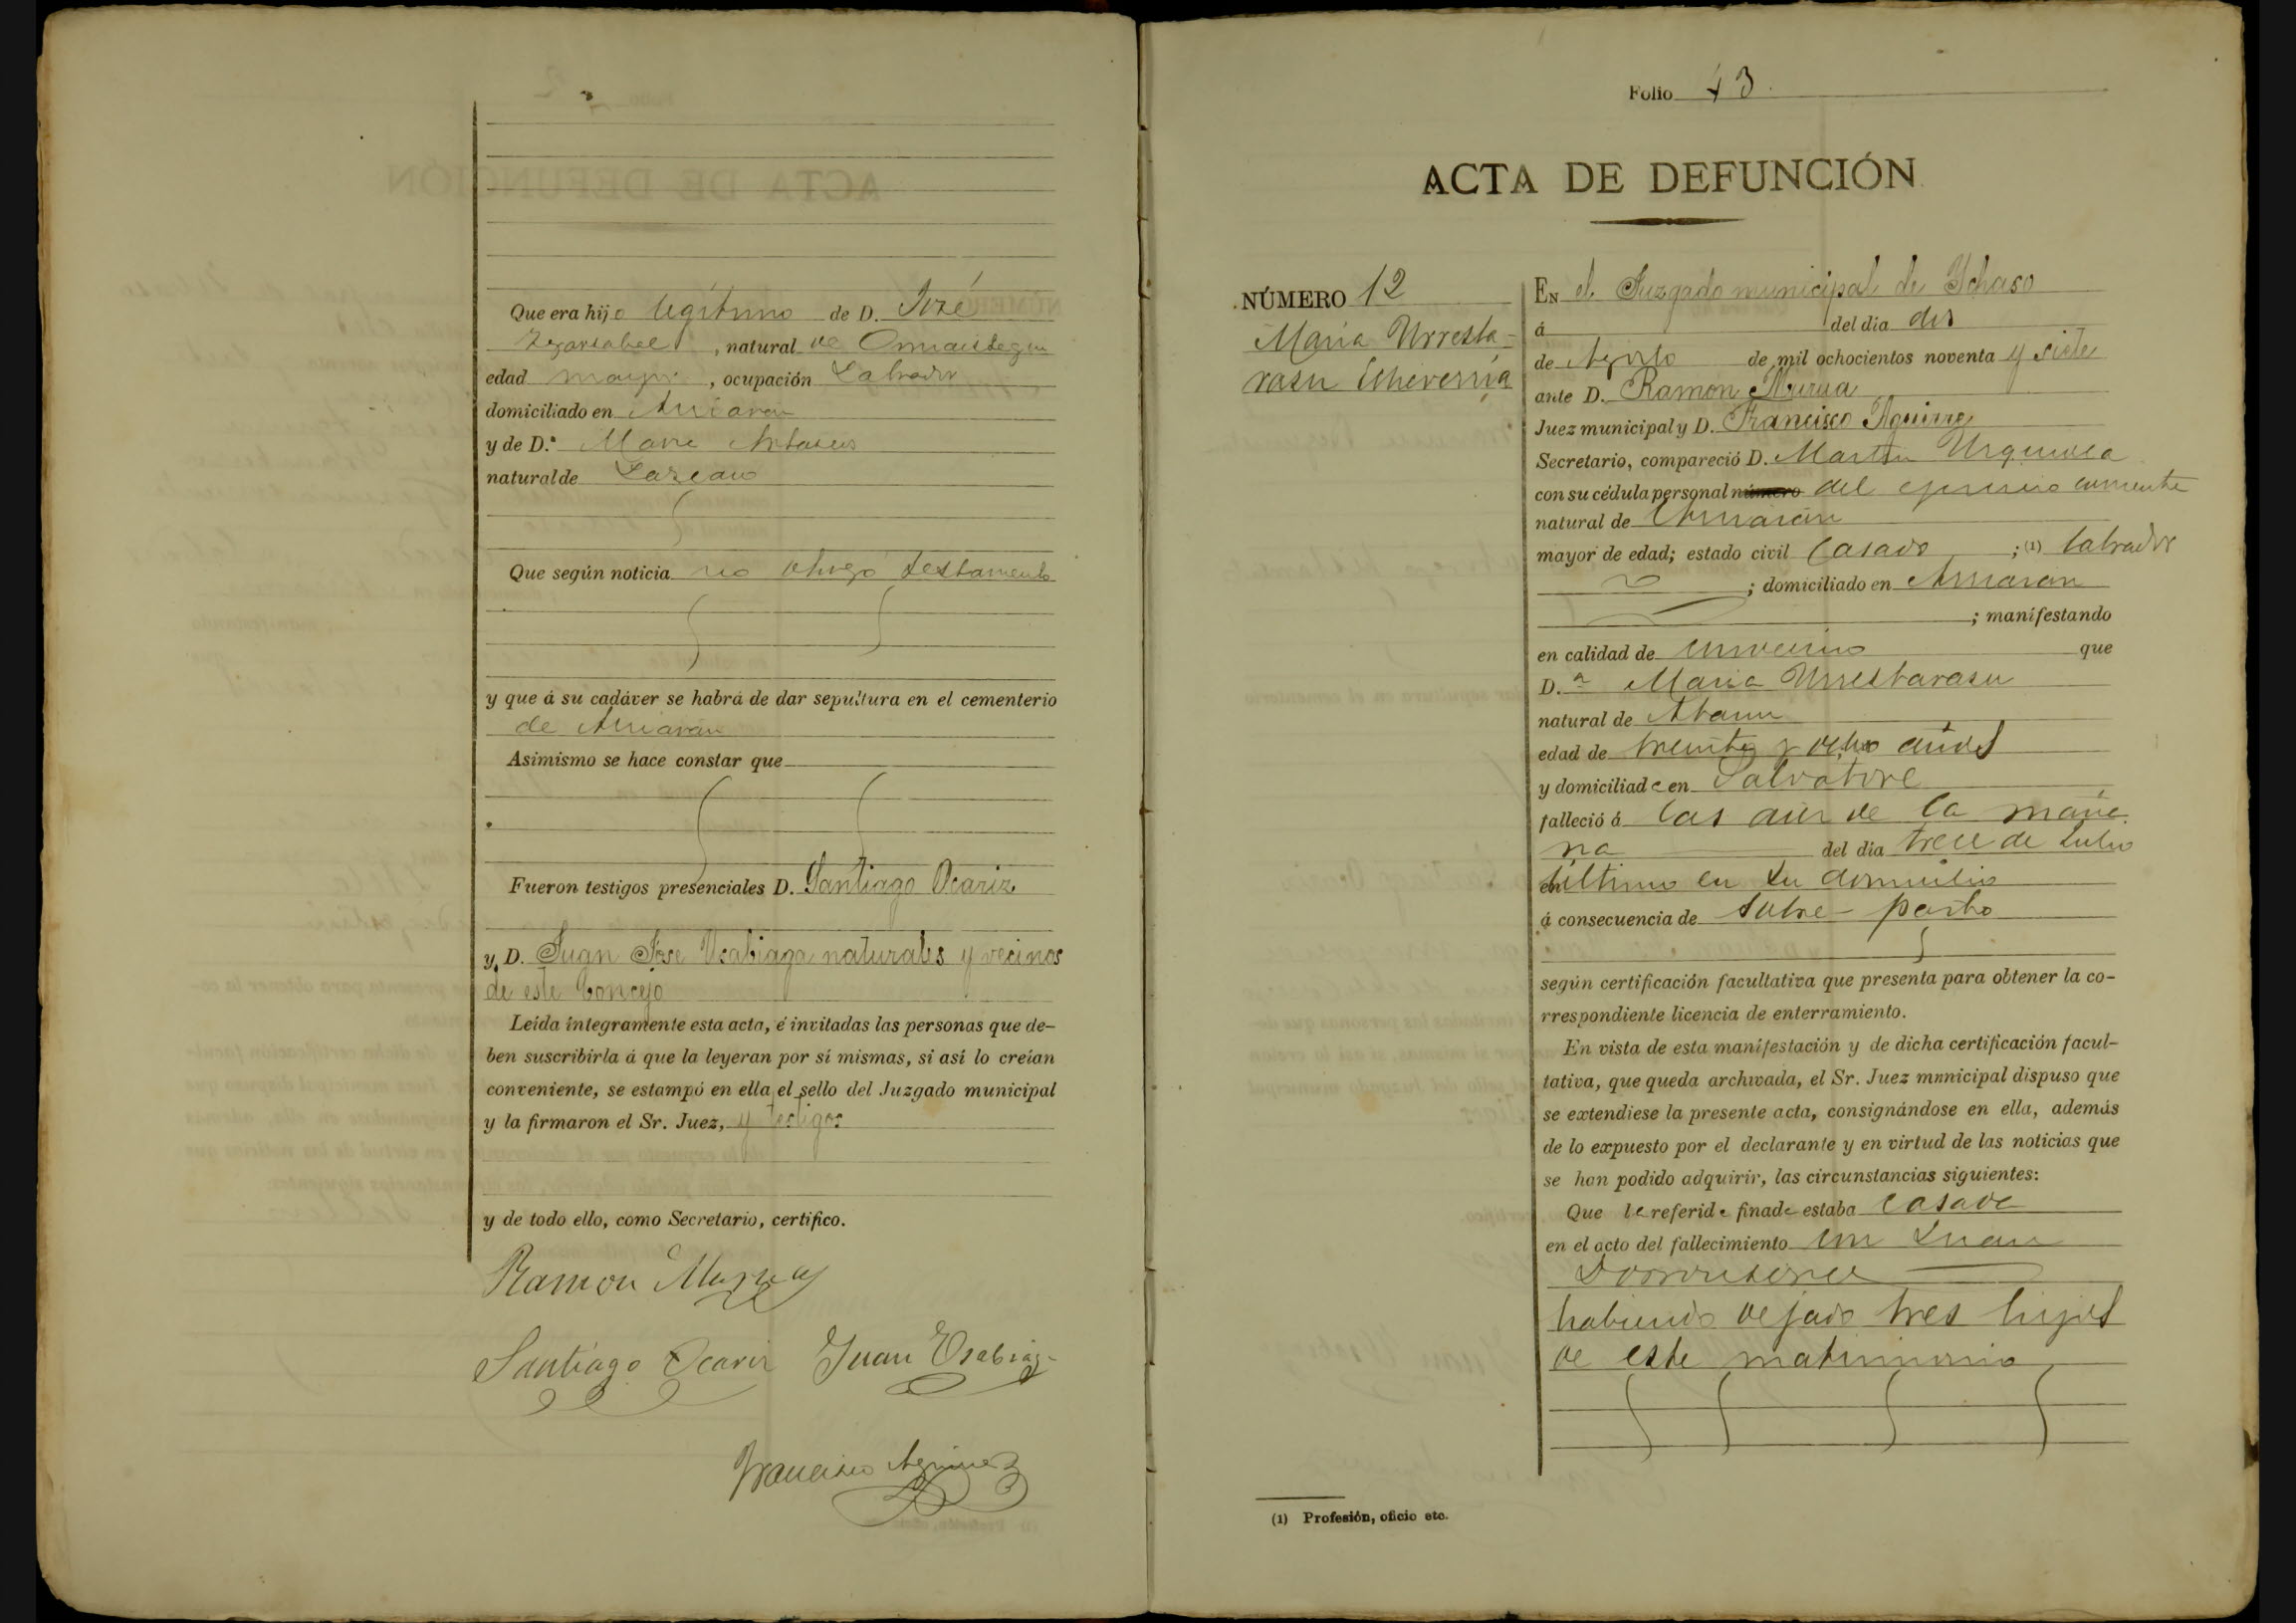 Que era hijo legítimo de D. José
, natural de Ormaiztegui
edad mayor, ocupación Labrador
domiciliado en Arriaran
y de D.ª Maria
natural de Lazcano
Que según noticia no otorgó testamento
y que á su cadáver se habrá de dar sepultura en el cementerio
de Arriaran
Asimismo se hace constar que
Fueron testigos presenciales D. Santiago Ocariz
y D. Juan José Usabiaga naturales y vecinos
de este Concejo
Leída íntegramente esta acta, é invitadas las personas que de-
ben suscribirla á que la leyeran por sí mismas, si así lo creían
conveniente, se estampó en ella el sello del Juzgado municipal
y la firmaron el Sr. Juez, y testigos
y de todo ello, como Secretario, certifico.
Ramon Murua
Santiago Ocariz Juan Usabiaga
Francisco Aguirre
Folio 43.
ACTA DE DEFUNCIÓN
NÚMERO 12
Maria Urresta-
rasu Echeverria
EN el Juzgado municipal de Ychaso
á del dia dos
de Agosto de mil ochocientos noventa y siete
ante D. Ramon Murua
Juez municipal y D. Francisco Aguirre
Secretario, compareció D. Martin Urquiola
con su cédula personal número del corriente
natural de Arriaran
mayor de edad; estado civil Casado ; (1) labrador
; domiciliado en Arriaran
; manifestando
en calidad de convecino que
D.ª Maria Urrestarasu
natural de Ataun
edad de treinta y ocho años
y domiciliada en Salvatore
falleció á las diez de la maña-
na del dia trece de Julio
en último en su domicilio
á consecuencia de sobre-parto
según certificación facultativa que presenta para obtener la co-
rrespondiente licencia de enterramiento.
En vista de esta manifestación y de dicha certificación facul-
tativa, que queda archivada, el Sr. Juez mnnicipal dispuso que
se extendiese la presente acta, consignándose en ella, además
de lo expuesto por el declarante y en virtud de las noticias que
se han podido adquirir, las circunstancias siguientes:
Que la referida finada estaba casada
en el acto del fallecimiento con Juan
habiendo dejado tres hijos
de este matrimonio
(1) Profesión, oficio etc.